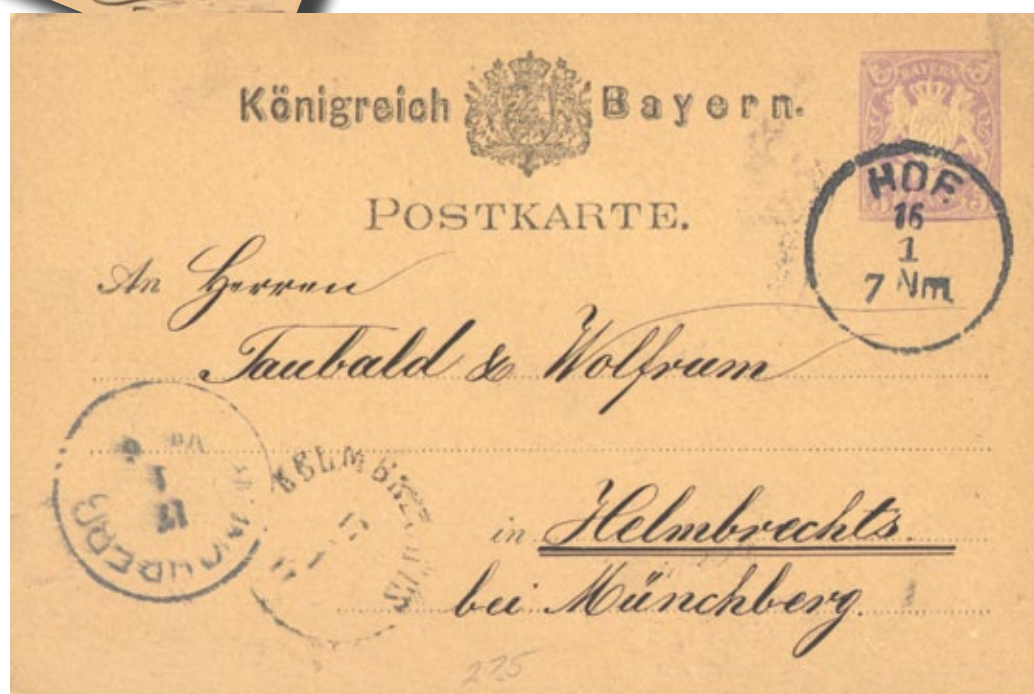 Königreich Bayern.
BAYERN
POSTKARTE.
HOF.
16
1
7 Nm.
An Herren
Taubald & Wolfrum
in Helmbrechts.
bei Münchberg.
HELMBRECHTS
17
MÜNCHBERG
17
1
225